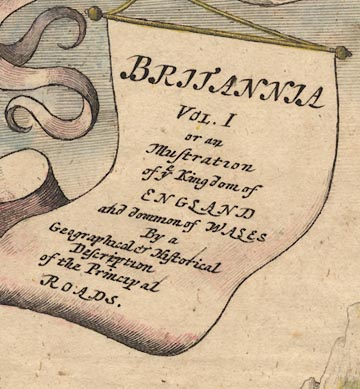 BRITANNIA
VOL. I
or an
Illustration
of yᵉ Kingdom of
ENGLAND
and dominon of WALES
By a
Geographical & Historical
Description
of the Principal
ROADS.